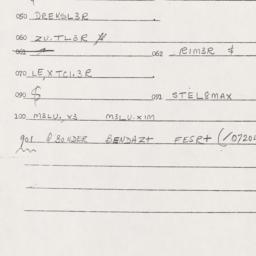 050 DREKOL3R
060 ZU.TL3R
062 RIM3R $
070 LE,XTCI.3R
090 $ 092 STEL8MAX
100 M3LU., X3 M3LU.X1M
901 BONDER BENDAZ+ FESR+ (/0720